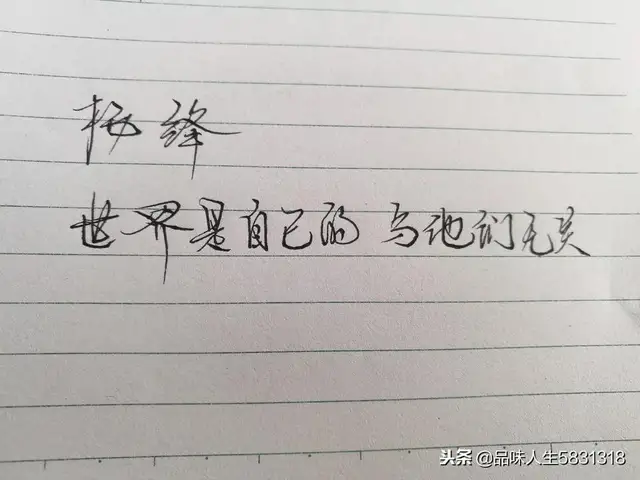 杨绛
世界是自己的 与他们无关
头条 @品味人生5831318